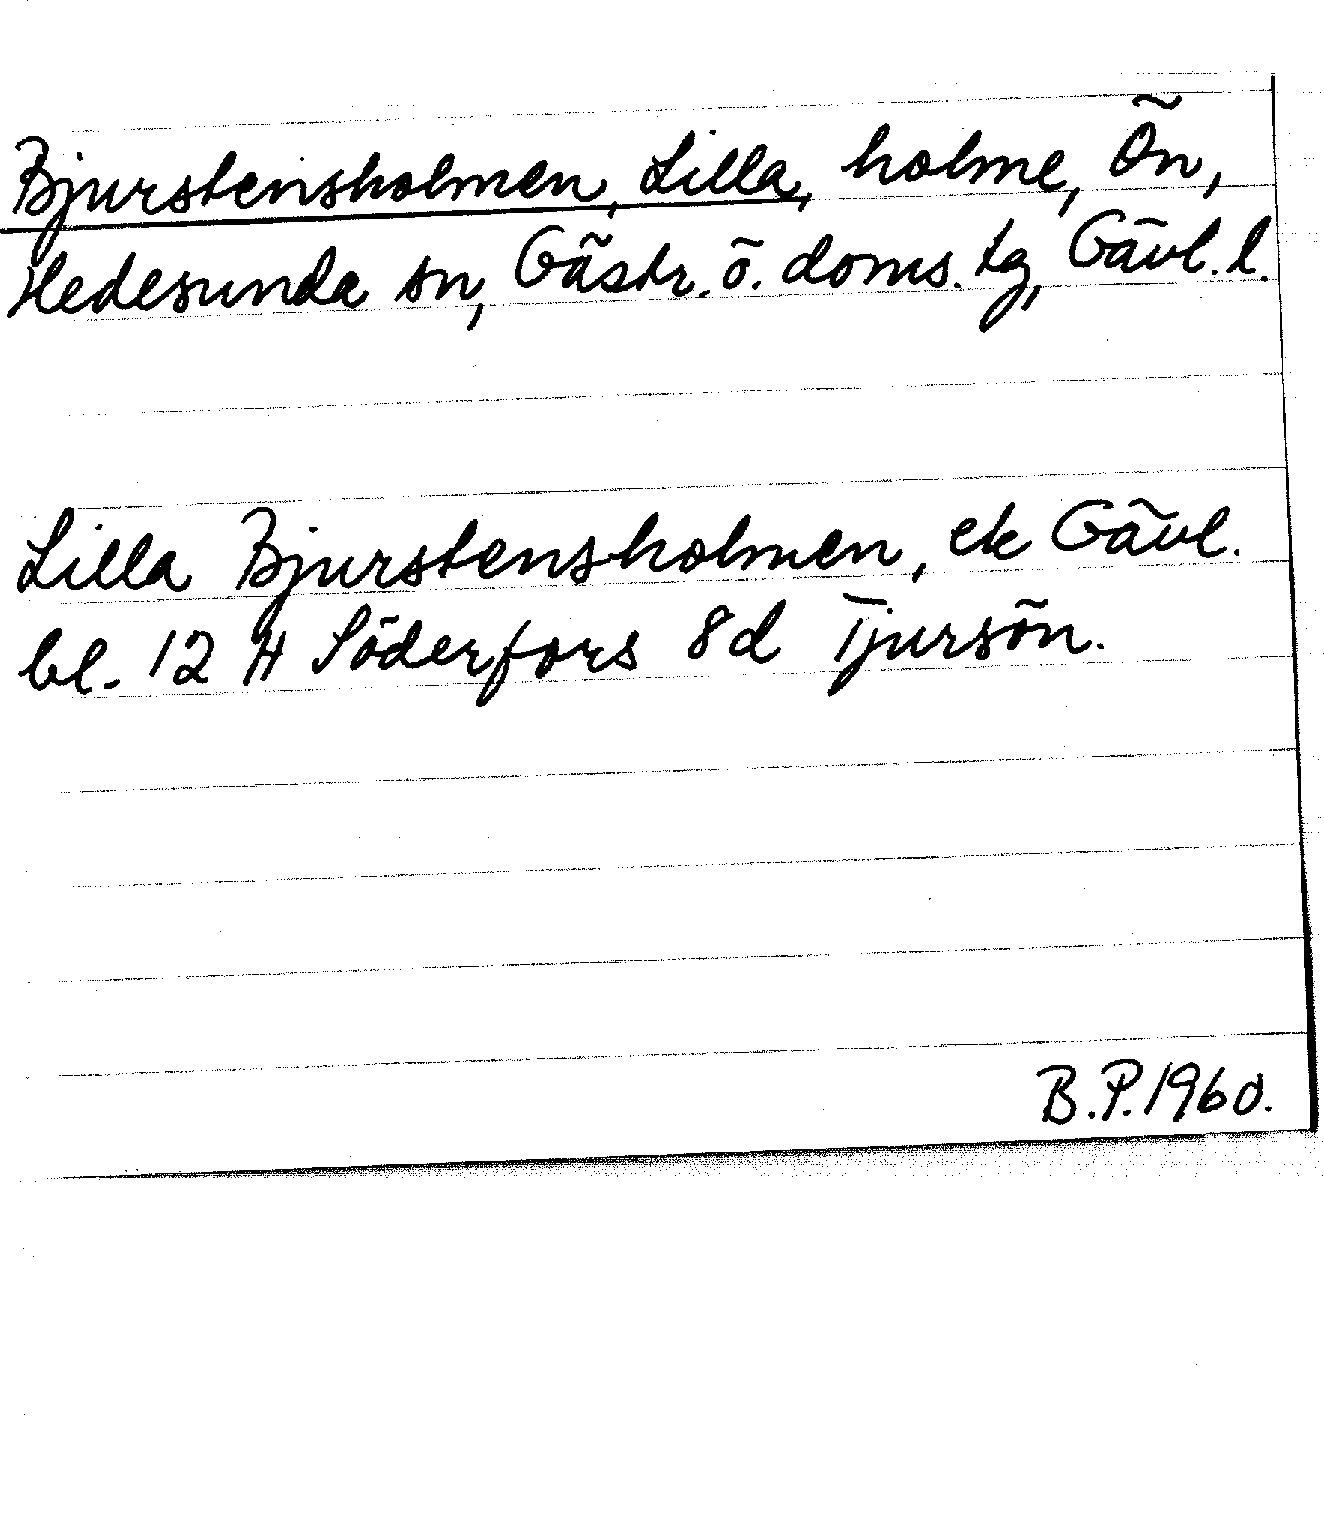 Bjurstensholmen, Lilla, holme, Ön,
Hedesunda sn, Gästr. ö. doms. tg, Gävl. l.
Lilla Bjurstensholmen, ek Gävl.
bl. 12 H Söderfors 8d Tjursön.
B.P. 1960.